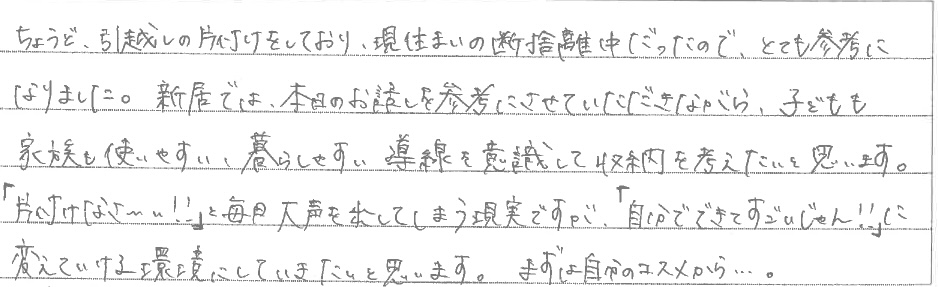 ちょうど、引越しの片付けをしており、現住まいの断捨離中だったので、とても参考に
なりました。新居では、本日のお話しを参考にさせていただきながら、子どもも
家族も使いやすい、暮らしやすい導線を意識して収納を考えたいと思います。
「片付けなさーい!!」と毎日大声を出してしまう現実ですが、「自分でできてすごいじゃん!!」に
変えていける環境にしていきたいと思います。まずは自分のコスメから…。